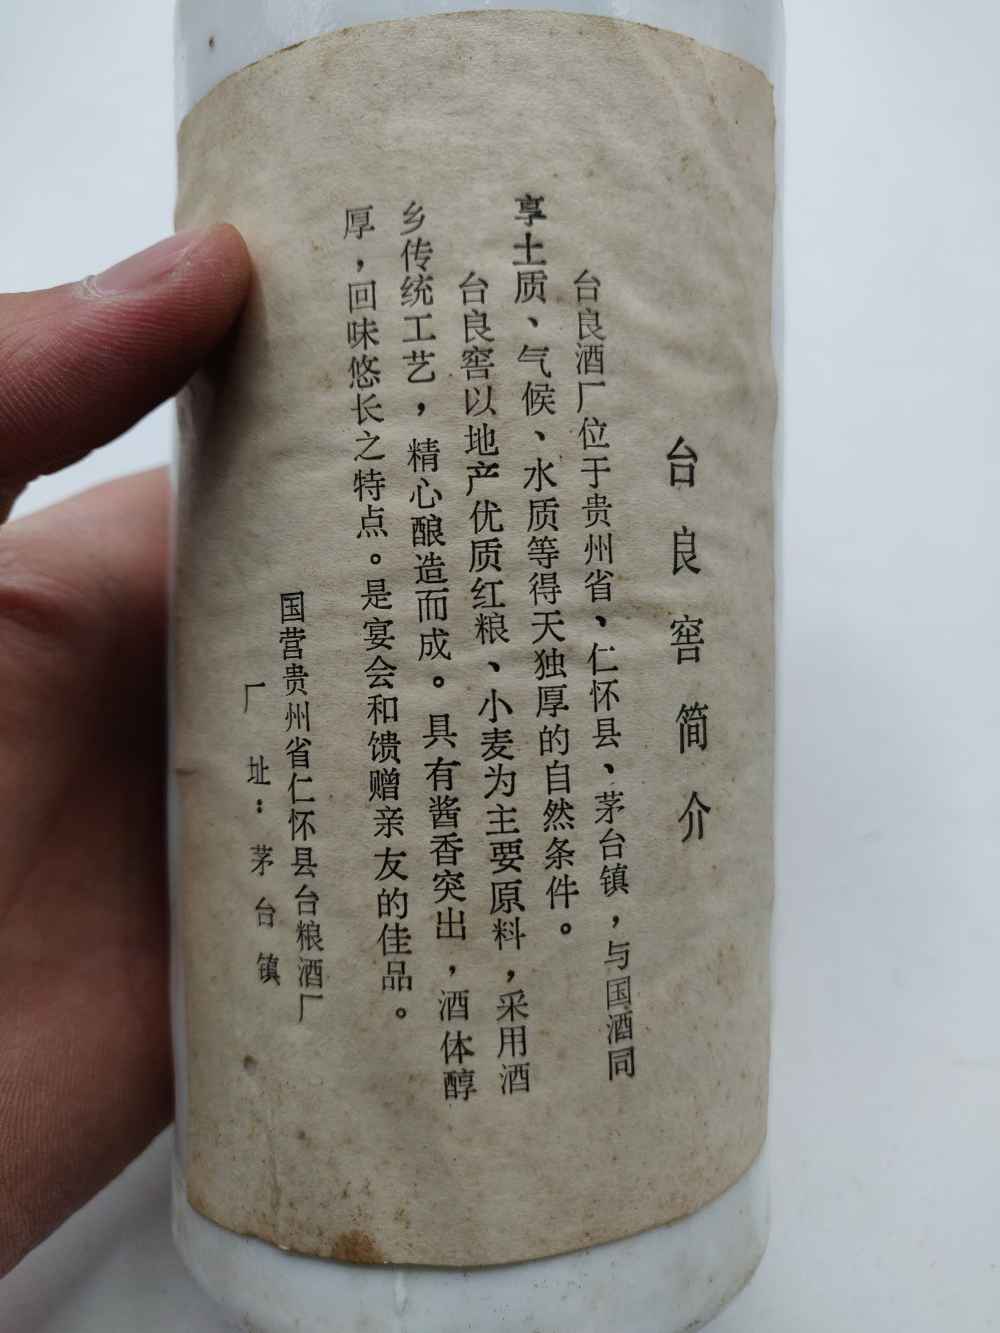 台良窖简介
台良酒厂位于贵州省、仁怀县、茅台镇，与国酒同
享土质、气候、水质等得天独厚的自然条件。
台良窖以地产优质红粮、小麦为主要原料，采用酒
乡传统工艺，精心酿造而成。具有酱香突出，酒体醇
厚，回味悠长之特点。是宴会和馈赠亲友的佳品。
国营贵州省仁怀县台粮酒厂
厂址：茅台镇